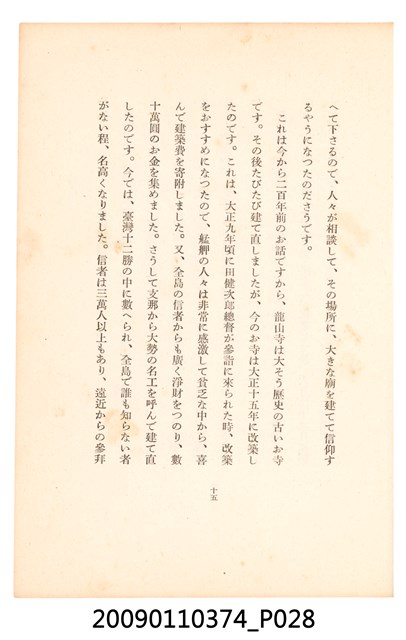 へて下さるので、人々が相談して、その場所に、大きな廟を建てて信仰す
るやうになつたのださうです。
これは今から二百年前のお話ですから、龍山寺は大そう歴史の古いお寺
です。その後たびたび建て直しましたが、今のお寺は大正十五年に改築し
たのです。これは、大正九年頃に田健次郎總督が參詣に來られた時、改築
をおすすめになつたので、艋舺の人々は非常に感激して貧乏な中から、喜
んで建築費を寄附しました。又、全島の信者からも廣く淨財をつのり、數
十萬圓のお金を集めました。さうして支那から大勢の名工を呼んで建て直
したのです。今では、臺灣十二勝の中に數へられ、全島で誰も知らない者
がない程、名高くなりました。信者は三萬人以上もあり、遠近からの參拜
十五
20090110374_P028